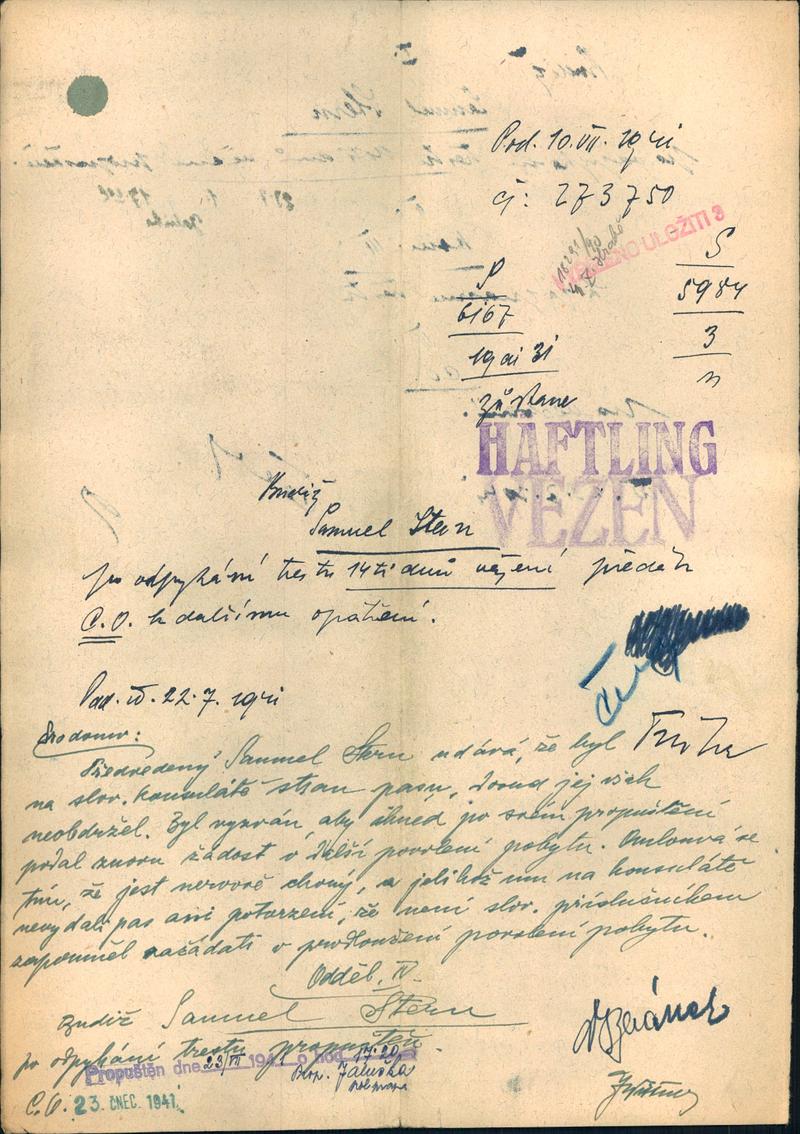 Pod. 10. VII. 1941
čj: 273750
ULOŽITI 3
18291/40
P
6167
19 ai 31
S
5984
3
n
zůstane
HAFTLING
VĚZEŇ
Budiž
Samuel Stern
po odpykání trestu 14ti dnů vězení předán
C.O. k dalšímu opatření.
22.7.1941
Předvedený Samuel Stern udává, že byl
na slov. konsulátě stran pasu, dosud jej však
neobdržel. Byl vyzván, aby ihned po svém propuštění
podal znovu žádost o další povolení pobytu. Omlouvá se
tím, že jest nervově chorý, a jelikož mu na konsulátě
nevydali pas ani potvrzení, že není slov. příslušníkem
zapomněl zažádati o prodloužení povolení pobytu.
Odděl. IV.
Budiž Samuel Stern
po odpykání trestu propuštěn.
Propuštěn dne 23/VII 1941 o hod. 17.20
Jaluška
C.O. 23. ČNEC. 1941